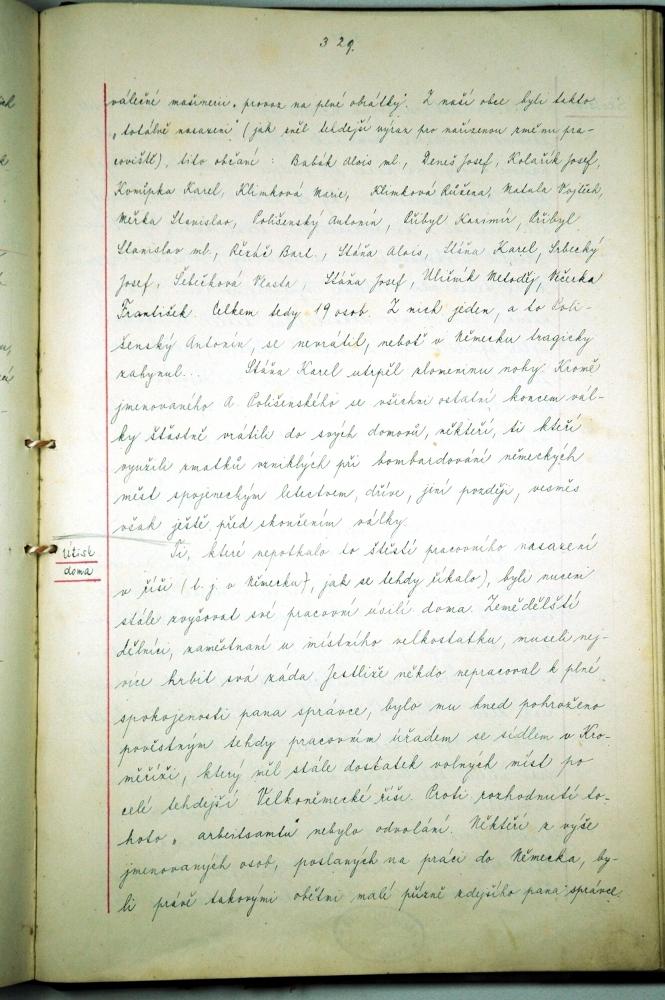 329.
válečné mašinerii „provoz na plné obrátky". Z naší obce byli takto
„totálně nasazeni" (jak zněl tehdejší výraz pro nařízenou změnu pra-
coviště), tito občané: Babák Alois ml., Deneš Josef, Kolařík Josef,
Konůpka Karel, Klimková Marie, Klimková Růžena, Matula Vojtěch,
Měrka Stanislav, Polišenský Antonín, Přibyl Kazimír, Přibyl
Stanislav ml., Řezáč Bart., Stáňa Alois, Stáňa Karel, Srbecký
Josef, Šebíčková Vlasta, Stáňa Josef, Uličník Metoděj, Večerka
František. Celkem tedy 19 osob. Z nich jeden, a to Poli-
šenský Antonín, se nevrátil, neboť v Německu tragicky
zahynul... Stáňa Karel utrpěl zlomeninu nohy. Kromě
jmenovaného A. Polišenského se všichni ostatní koncem vál-
ky šťastně vrátili do svých domovů, někteří, ti kteří
využili zmatků vzniklých při bombardování německých
měst spojeneckým letectvem, dříve, jiní později, vesměs
však ještě před skončením války.
Útisk
doma
Ti, které nepotkalo to štěstí pracovního nasazení
v říši (t. j. v Německu, jak se tehdy říkalo), byli nuceni
stále zvyšovat své pracovní úsilí doma. Zemědělští
dělníci, zaměstnaní u místního velkostatku, museli nej-
více hrbit svá záda. Jestliže někdo nepracoval k plné
spokojenosti pana správce, bylo mu hned pohroženo
pověstným tehdy pracovním úřadem se sídlem v Kro-
měříži, který měl stále dostatek volných míst po
celé tehdejší Velkoněmecké říši. Proti rozhodnutí to-
hoto „arbeitsamtu" nebylo odvolání. Někteří z výše
jmenovaných osob, poslaných na práci do Německa, by-
li právě takovými obětmi malé přízně zdejšího pana správce.